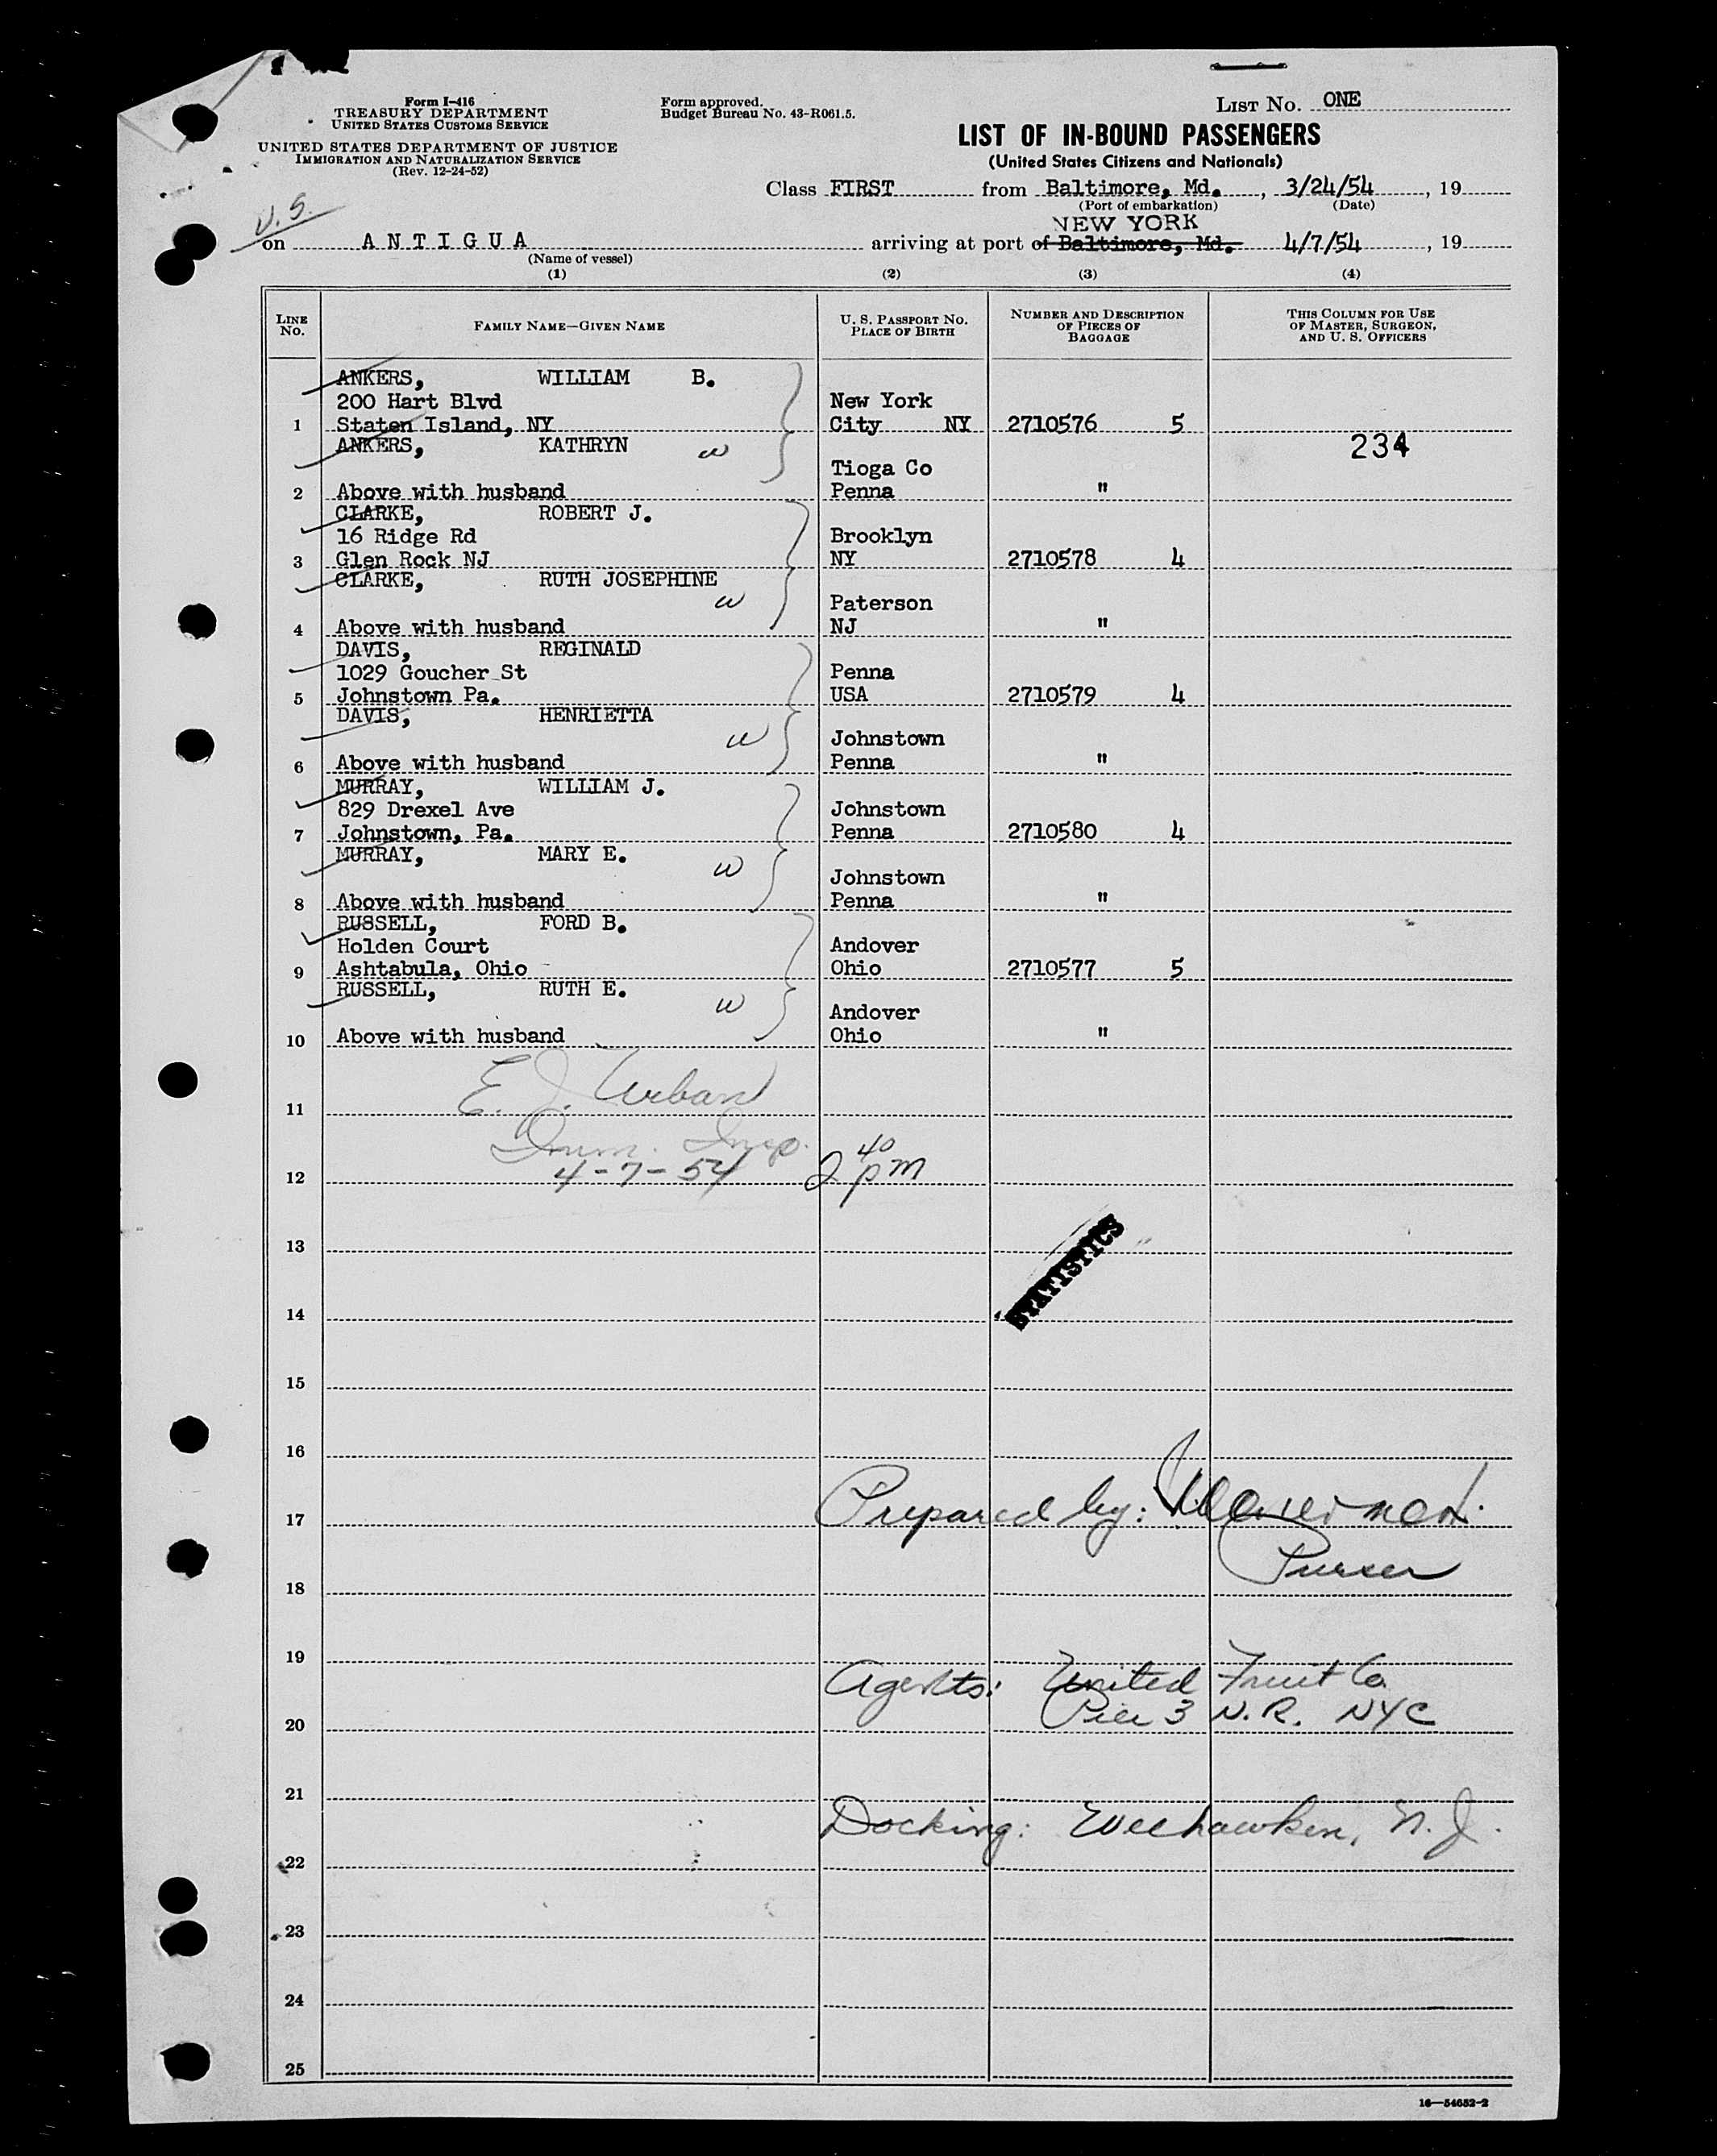 Form I-416
TREASURY DEPARTMENT
UNITED STATES CUSTOMS SERVICE
UNITED STATES DEPARTMENT OF JUSTICE
IMMIGRATION AND NATURALIZATION SERVICE
(Rev. 12-24-52)
Form approved.
Budget Bureau No. 43-R061.5.
LIST NO. ONE
LIST OF IN-BOUND PASSENGERS
(United States Citizens and Nationals)
Class FIRST from Baltimore, Md., 3/24/54, 19
(Port of embarkation) (Date)
U.S.
NEW YORK
on ANTIGUA arriving at port of Baltimore, Md. 4/7/54, 19
(Name of vessel)
(1) (2) (3) (4)
LINE NO. FAMILY NAME—GIVEN NAME U. S. PASSPORT NO. PLACE OF BIRTH NUMBER AND DESCRIPTION OF PIECES OF BAGGAGE THIS COLUMN FOR USE OF MASTER, SURGEON, AND U. S. OFFICERS
ANKERS, WILLIAM B.
200 Hart Blvd New York
1 Staten Island, NY City NY 2710576 5
ANKERS, KATHRYN w 234
Tioga Co
2 Above with husband Penna "
CLARKE, ROBERT J.
16 Ridge Rd Brooklyn
3 Glen Rock NJ NY 2710578 4
CLARKE, RUTH JOSEPHINE
w Paterson
4 Above with husband NJ "
DAVIS, REGINALD
1029 Goucher St Penna
5 Johnstown Pa. USA 2710579 4
DAVIS, HENRIETTA
w Johnstown
6 Above with husband Penna "
MURRAY, WILLIAM J.
829 Drexel Ave Johnstown
7 Johnstown, Pa. Penna 2710580 4
MURRAY, MARY E.
w Johnstown
8 Above with husband Penna "
RUSSELL, FORD B.
Holden Court Andover
9 Ashtabula, Ohio Ohio 2710577 5
RUSSELL, RUTH E.
w Andover
10 Above with husband Ohio "
E. J. Urban
11
Imm. Insp.
4-7-54 2 40 pm
12
13
STATISTICS
14
15
16
Prepared by:
17
Purser
18
19
Agents: United Fruit Co.
Pier 3 N.R. NYC
20
21
Docking: Weehawken, N.J.
22
23
24
25
16—54652-2